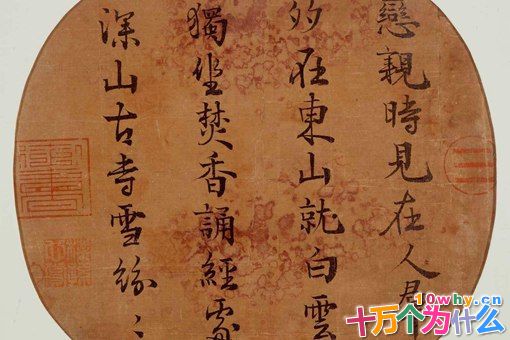 戀親時見在人羣
多在東山就白雲
獨坐焚香誦經處
深山古寺雪紛〻
10why.cn
十万个为什么